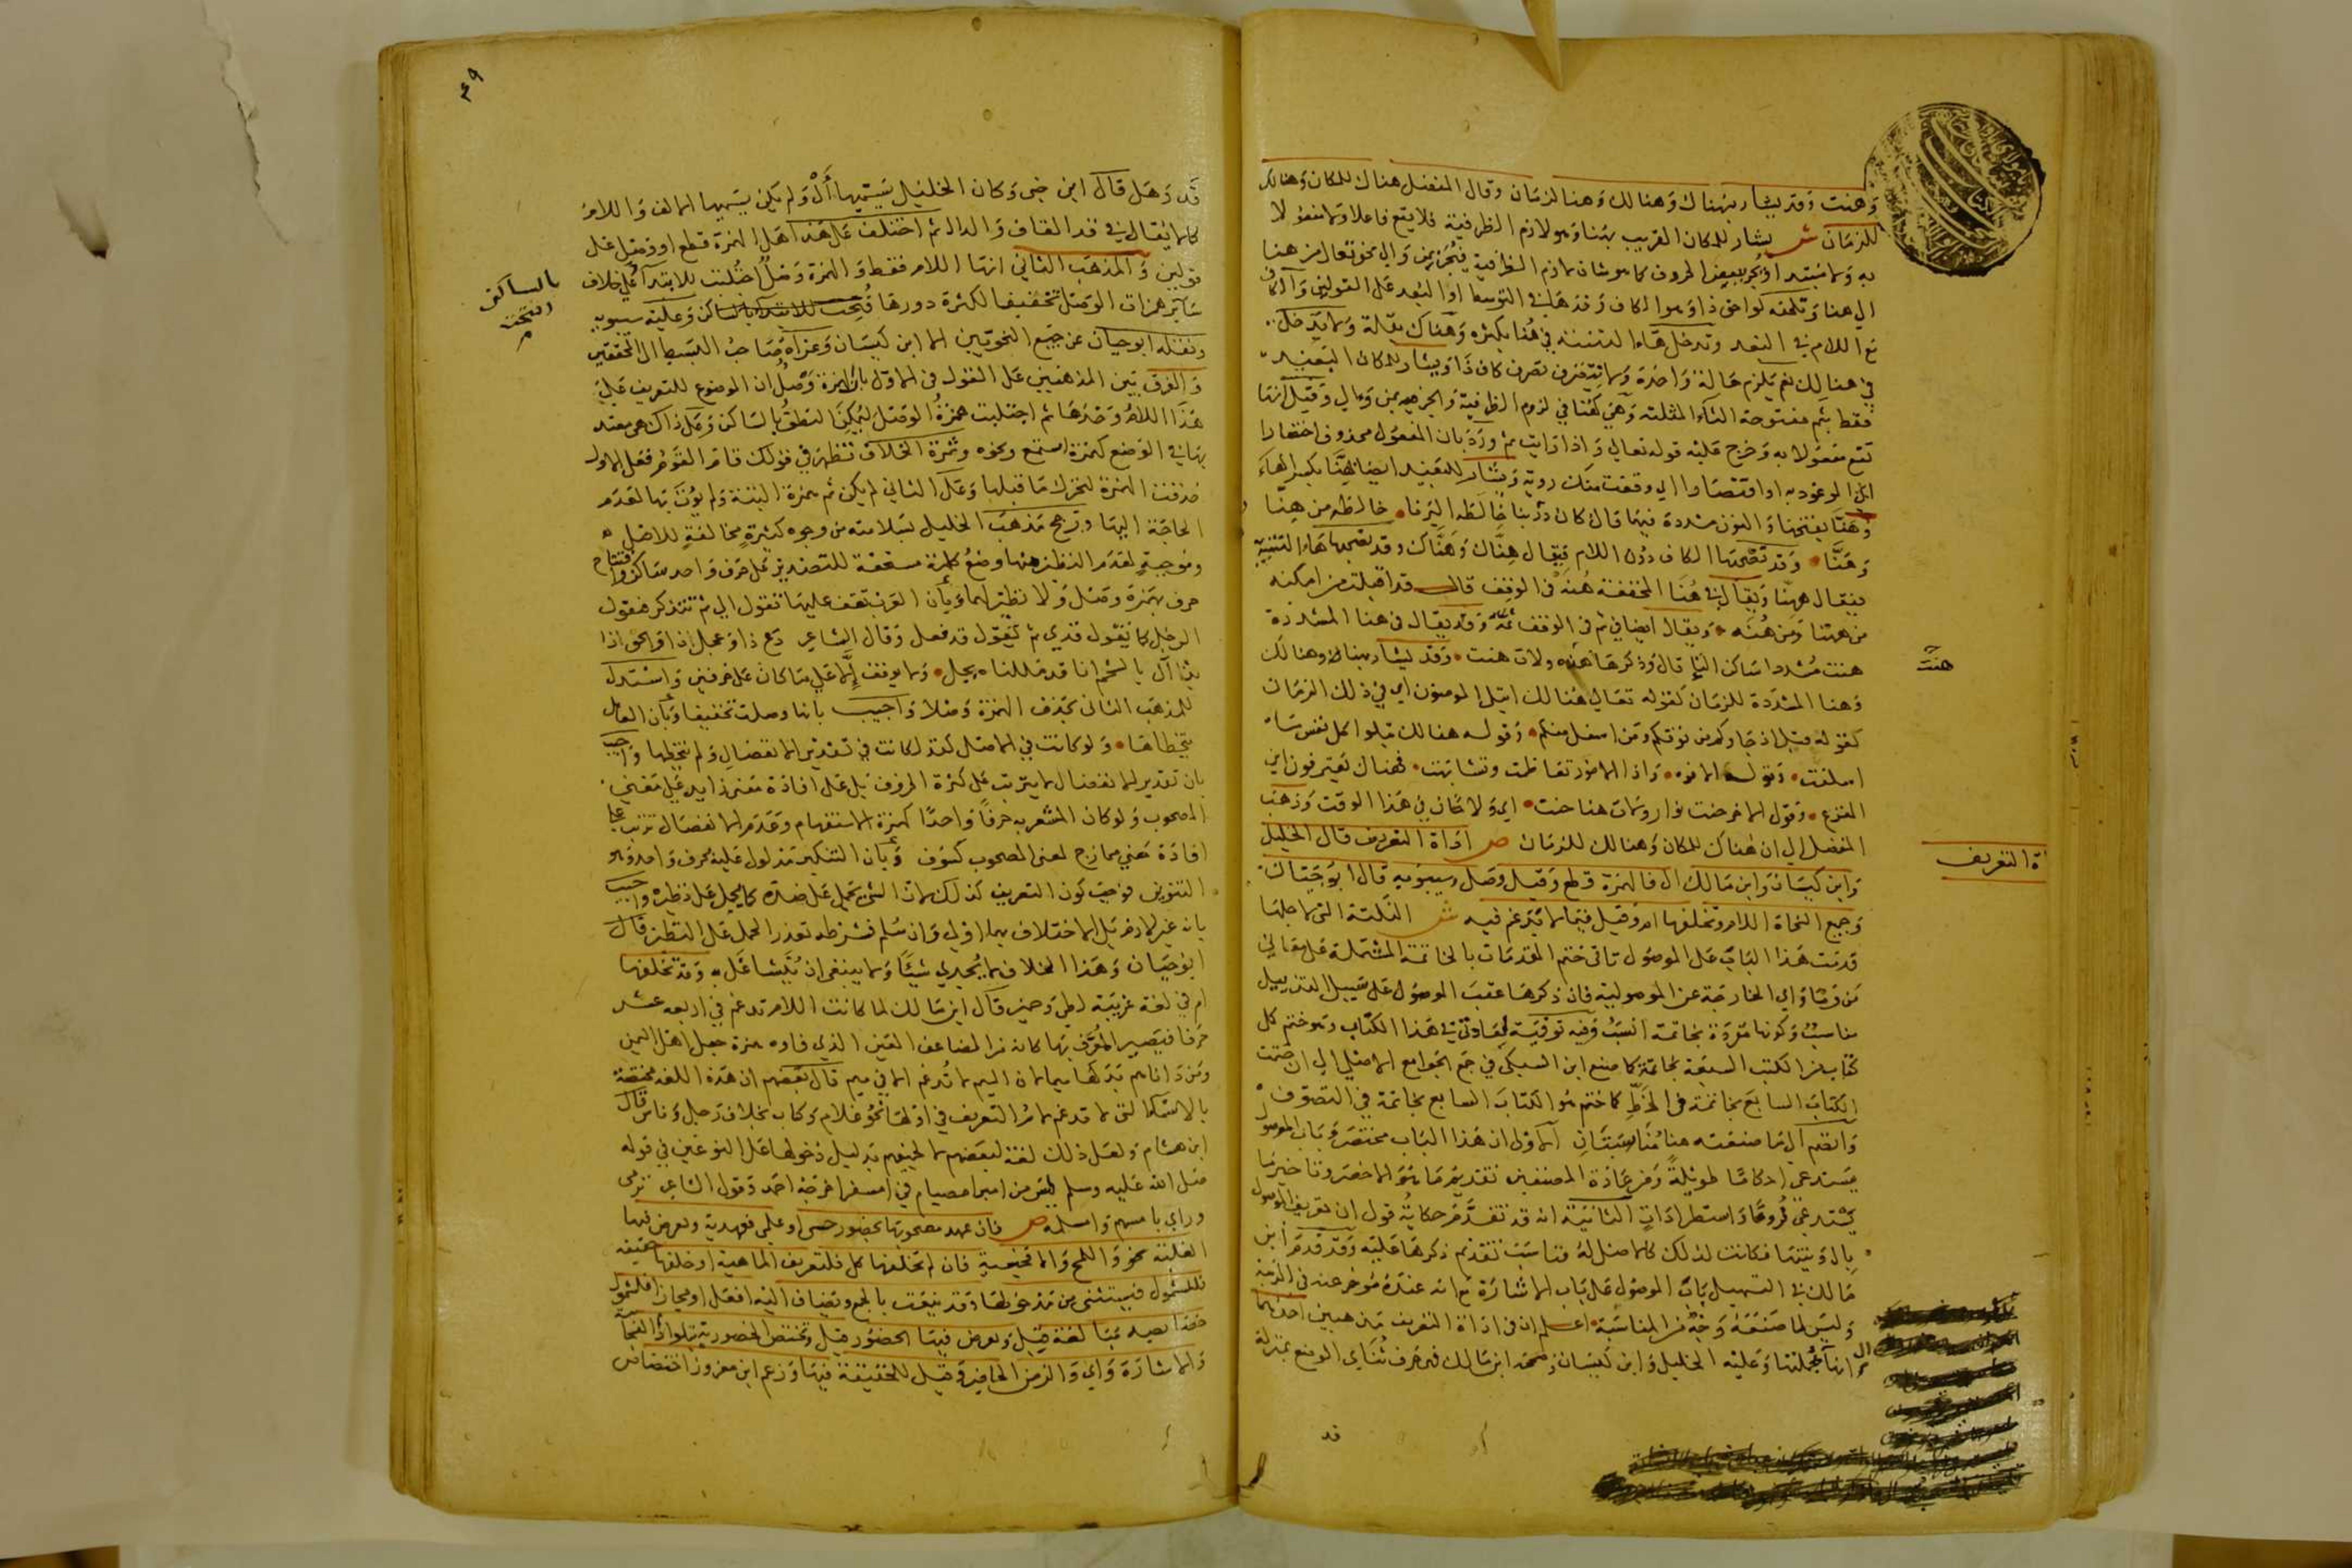 وهنت وقد يشار بهناك وهنالك وهنا لزمان وقال المفضل هناك للمكان وهنالك
للزمان ش يشار للمكان القريب بهنا وهو لازم الظرفية فلا يقع فاعلا ولا مفعولا
به ولا مبتدا
الى هنا وتلحقه لواحق ذا وهو الكاف وحدها في التوسط او البعد على القولين والكاف
مع اللام في البعد وتدخل هاء التنبيه في هنا بكثرة وهناك بقلة ولا تدخل
في هنالك نعم يلزم حالة واحدة ولا يتصرف تصرف كاف ذا ويشار للمكان البعيد
فقط بثم مفتوحة الثاء المثلثة وهي كهنا في لزوم الظرفية والجر بمن والى وقيل انها
تقع مفعولا به وخرج عليه قوله تعالى واذا رايت ثم ورد بان المفعول محذوف اختصارا
اي الموعود به او اقتصارا اي وقعت منك رؤية ويشار للبعيد ايضا بهنا بكسر الهاء
وهنا بفتحها والنون مشددة فيهما قال كان
وهنا وقد تصحبها الكاف دون اللام فيقال هناك وهناك وقد تصحبها هاء التنبيه
فيقال ههنا ويقال في هنا المخففة هنه في الوقف قال قد اقبلت من امكنه
من ههنا ومن هنه ويقال ايضا في ثم في الوقف ثمه وقد يقال في هنا المشددة
هنت مشددا ساكن التاء قال وذكرها هنه ولات هنت وقد يشار بهناك وهنالك
وهنا المشددة للزمان كقوله تعالى هنالك ابتلي المومنون اي في ذلك الزمان
كقوله قبل اذ جاوكم من فوقكم ومن اسفل منكم وقوله هنالك تبلوا كل نفس ما
اسلفت وقول الافوه واذا الامور تعاظمت وتشابهت فهناك يعترفون اين
المفزع وقول الاخر حنت نوار ولات هنا حنت اي ولا حان في هذا الوقت وذهب
المفضل الى ان هناك للمكان وهنالك للزمان ص اداة التعريف قال الخليل
وابن كيسان وابن مالك ال فالهمزة قطع وقيل وصل وسيبويه قال ابو حيان
وجميع النحاة اللام وتخلفها ام وقيل فيما لا يدغم فيه ش النكتة التي لاجلها
قدمت هذا الباب على الموصول تاتي ختم المقدمات بالخاتمة المشتملة على معاني
من وما واي الخارجة عن الموصولية فان ذكرها عقب الموصول على سبيل التذييل
مناسب وكونها مفردة بخاتمة انسب وفيه توفية لعادتي في هذا الكتاب وهو ختم كل
كتاب من الكتب السبعة بخاتمة كما صنع ابن السبكي في جمع الجوامع الاصلي الى ان ختمت
الكتاب السابع بخاتمة في الخط كما ختم هو الكتاب السابع بخاتمة في التصوف
وانضم الى ما صنعته هنا مناسبتان الاولى ان هذا الباب مختصر وباب الموصول
يستدعي احكاما طويلة ومن عادة المصنفين تقديم ما هو الاخصر وتاخير ما
يستدعي فروعا واستطرادات الثانية انه قد تقدم حكاية قول ان تعريف الموصول
بال ونيتها فكانت لذلك كالاصل له فناسب تقديم ذكرها عليه وقد قدم ابن
مالك في التسهيل باب الموصول على باب الاشارة مع انه عنده موخر عنه في الرتبة
وليس لما صنعه وجه من المناسبة اعلم ان في اداة التعريف مذهبين احدهما
انها ال بجملتها وعليه الخليل وابن كيسان وصححه ابن مالك فهو حرف ثنائي الوضع بمنزلة
قد
هنت
ة التعريف
٤٩
قد وهل قال ابن جني وكان الخليل يسميها أل ولم يكن يسميها الالف واللام
كما لا يقال في قد القاف والدال ثم اختلف على هذا هل الهمزة قطع او وصل على
قولين والمذهب الثاني انها اللام فقط والهمزة وصل اجتلبت للابتداء على خلاف
ساير همزات الوصل تخفيفا لكثرة دورها وعليه سيبويه
ونقله ابو حيان عن جميع النحويين الا ابن كيسان وعزاه صاحب البسيط الى المحققين
والفرق بين المذهبين على القول في الاول بان الهمزة وصل ان الموضوع للتعريف على
هذا اللام وحدها ثم اجتلبت همزة الوصل ليمكن النطق بالساكن وعلى ذاك هي معتد
بها في الوضع كهمزة استمع ونحوه وثمرة الخلاف تظهر في قولك قام القوم فعلى الاول
حذفت الهمزة لتحرك ما قبلها وعلى الثاني لم يكن ثم همزة البتة ولم يؤت بها لعدم
الحاجة اليها وترجح مذهب الخليل بسلامته من وجوه كثيرة مخالفة للاصل
وموجبة لعدم النظير منها وضع كلمة مستحقة للتصدير على حرف واحد ساكن وافتتاح
حرف بهمزة وصل ولا نظير لهما وبان العرب تقف عليها تقول الي ثم تتذكر فتقول
الرجل كما تقول قدي ثم تقول قد فعل وقال الشاعر دع ذا وعجل ذا والحق اذا
بذا ال بالشحم انا قد مللناه بجل ولا يوقف الا على ما كان على حرفين واستدل
للمذهب الثاني بحذف الهمزة وصلا واجيب بانها وصلت تخفيفا وبان العامل
يتخطاها ولو كانت في الاصل كقد لكانت في تقدير الانفصال ولم يتخطها واجيب
بان تقدير الانفصال لا يترتب على كثرة الحروف بل على افادة معنى زايد على معنى
المصحوب ولو كان المشعر به حرفا واحدا كهمزة الاستفهام وعدم الانفصال يترتب على
افادة معنى ممازج لمعنى المصحوب كسوف وبان التنكير مدلول عليه بحرف واحد وهو
التنوين فوجب كون التعريف كذلك لان الشي يحمل على ضده كما يحمل على نظيره واجيب
بانه غير لازم بل الاختلاف بهما اولى وان سلم فشرطه تعذر الحمل على النظير قال
ابو حيان وهذا الخلاف لا يجدي شيئا ولا ينبغي ان يتشاغل به وقد تخلفها
ام في لغة عزيت لطي وحمير قال ابن مالك لما كانت اللام تدغم في اربعة عشر
حرفا فيصير المعرف بها كانه من المضاعف العين الذي فاوه همزة جعل اهل اليمن
ومن داناهم بدلها ميما لان الميم لا تدغم الا في ميم قال بعضهم ان هذه اللغة مختصة
بالاسماء التي لا تدغم لام التعريف في اولها نحو غلام وكتاب بخلاف رجل وناس قال
ابن هشام ولعل ذلك لغة لبعضهم لا لجميعهم بدليل دخولها على النوعين في قوله
صلى الله عليه وسلم ليس من امبر امصيام في امسفر اخرجه احمد وقول الشاعر يرمي
وراي بامسهم وامسلمه ص فان عهد مصحوبها بحضور حسي او علمي فعهدية وتعرض فيها
الغلبة فان لم تخلفها كل فلتعريف الماهية او خلفها حقيقة
فللشمول فيستثنى من مدخولها وقد ينعت بالجمع ويضاف اليه افعل او مجازا فلشمول
خصايصه مبالغة قيل وتعرض فيها الحضور قيل وتختص الحضورية بتلو اذا الفجاة
والاشارة واي والزمن الحاضر وقيل للحقيقة فيها وزعم ابن معزوز اختصاص